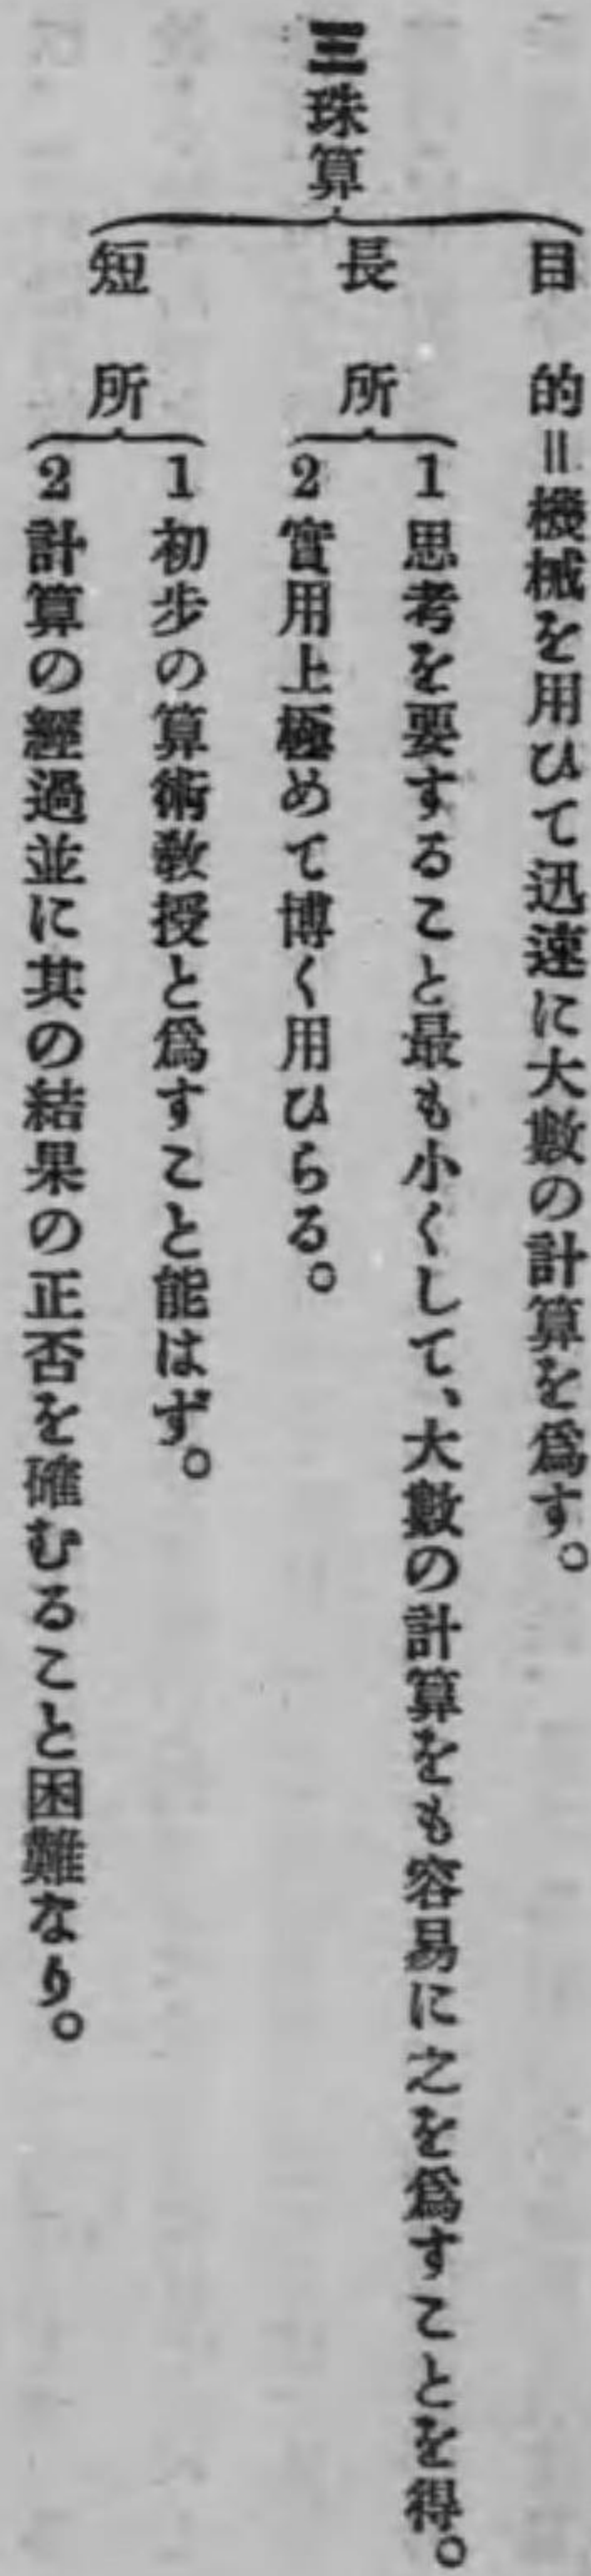 三珠算
目的＝機械を用ひて迅速に大數の計算を爲す。
長所
1 思考を要すること最も小くして、大數の計算をも容易に之を爲すことを得。
2 實用上極めて博く用ひらる。
短所
1 初步の算術敎授と爲すこと能はず。
2 計算の經過並に其の結果の正否を確むること困難なり。